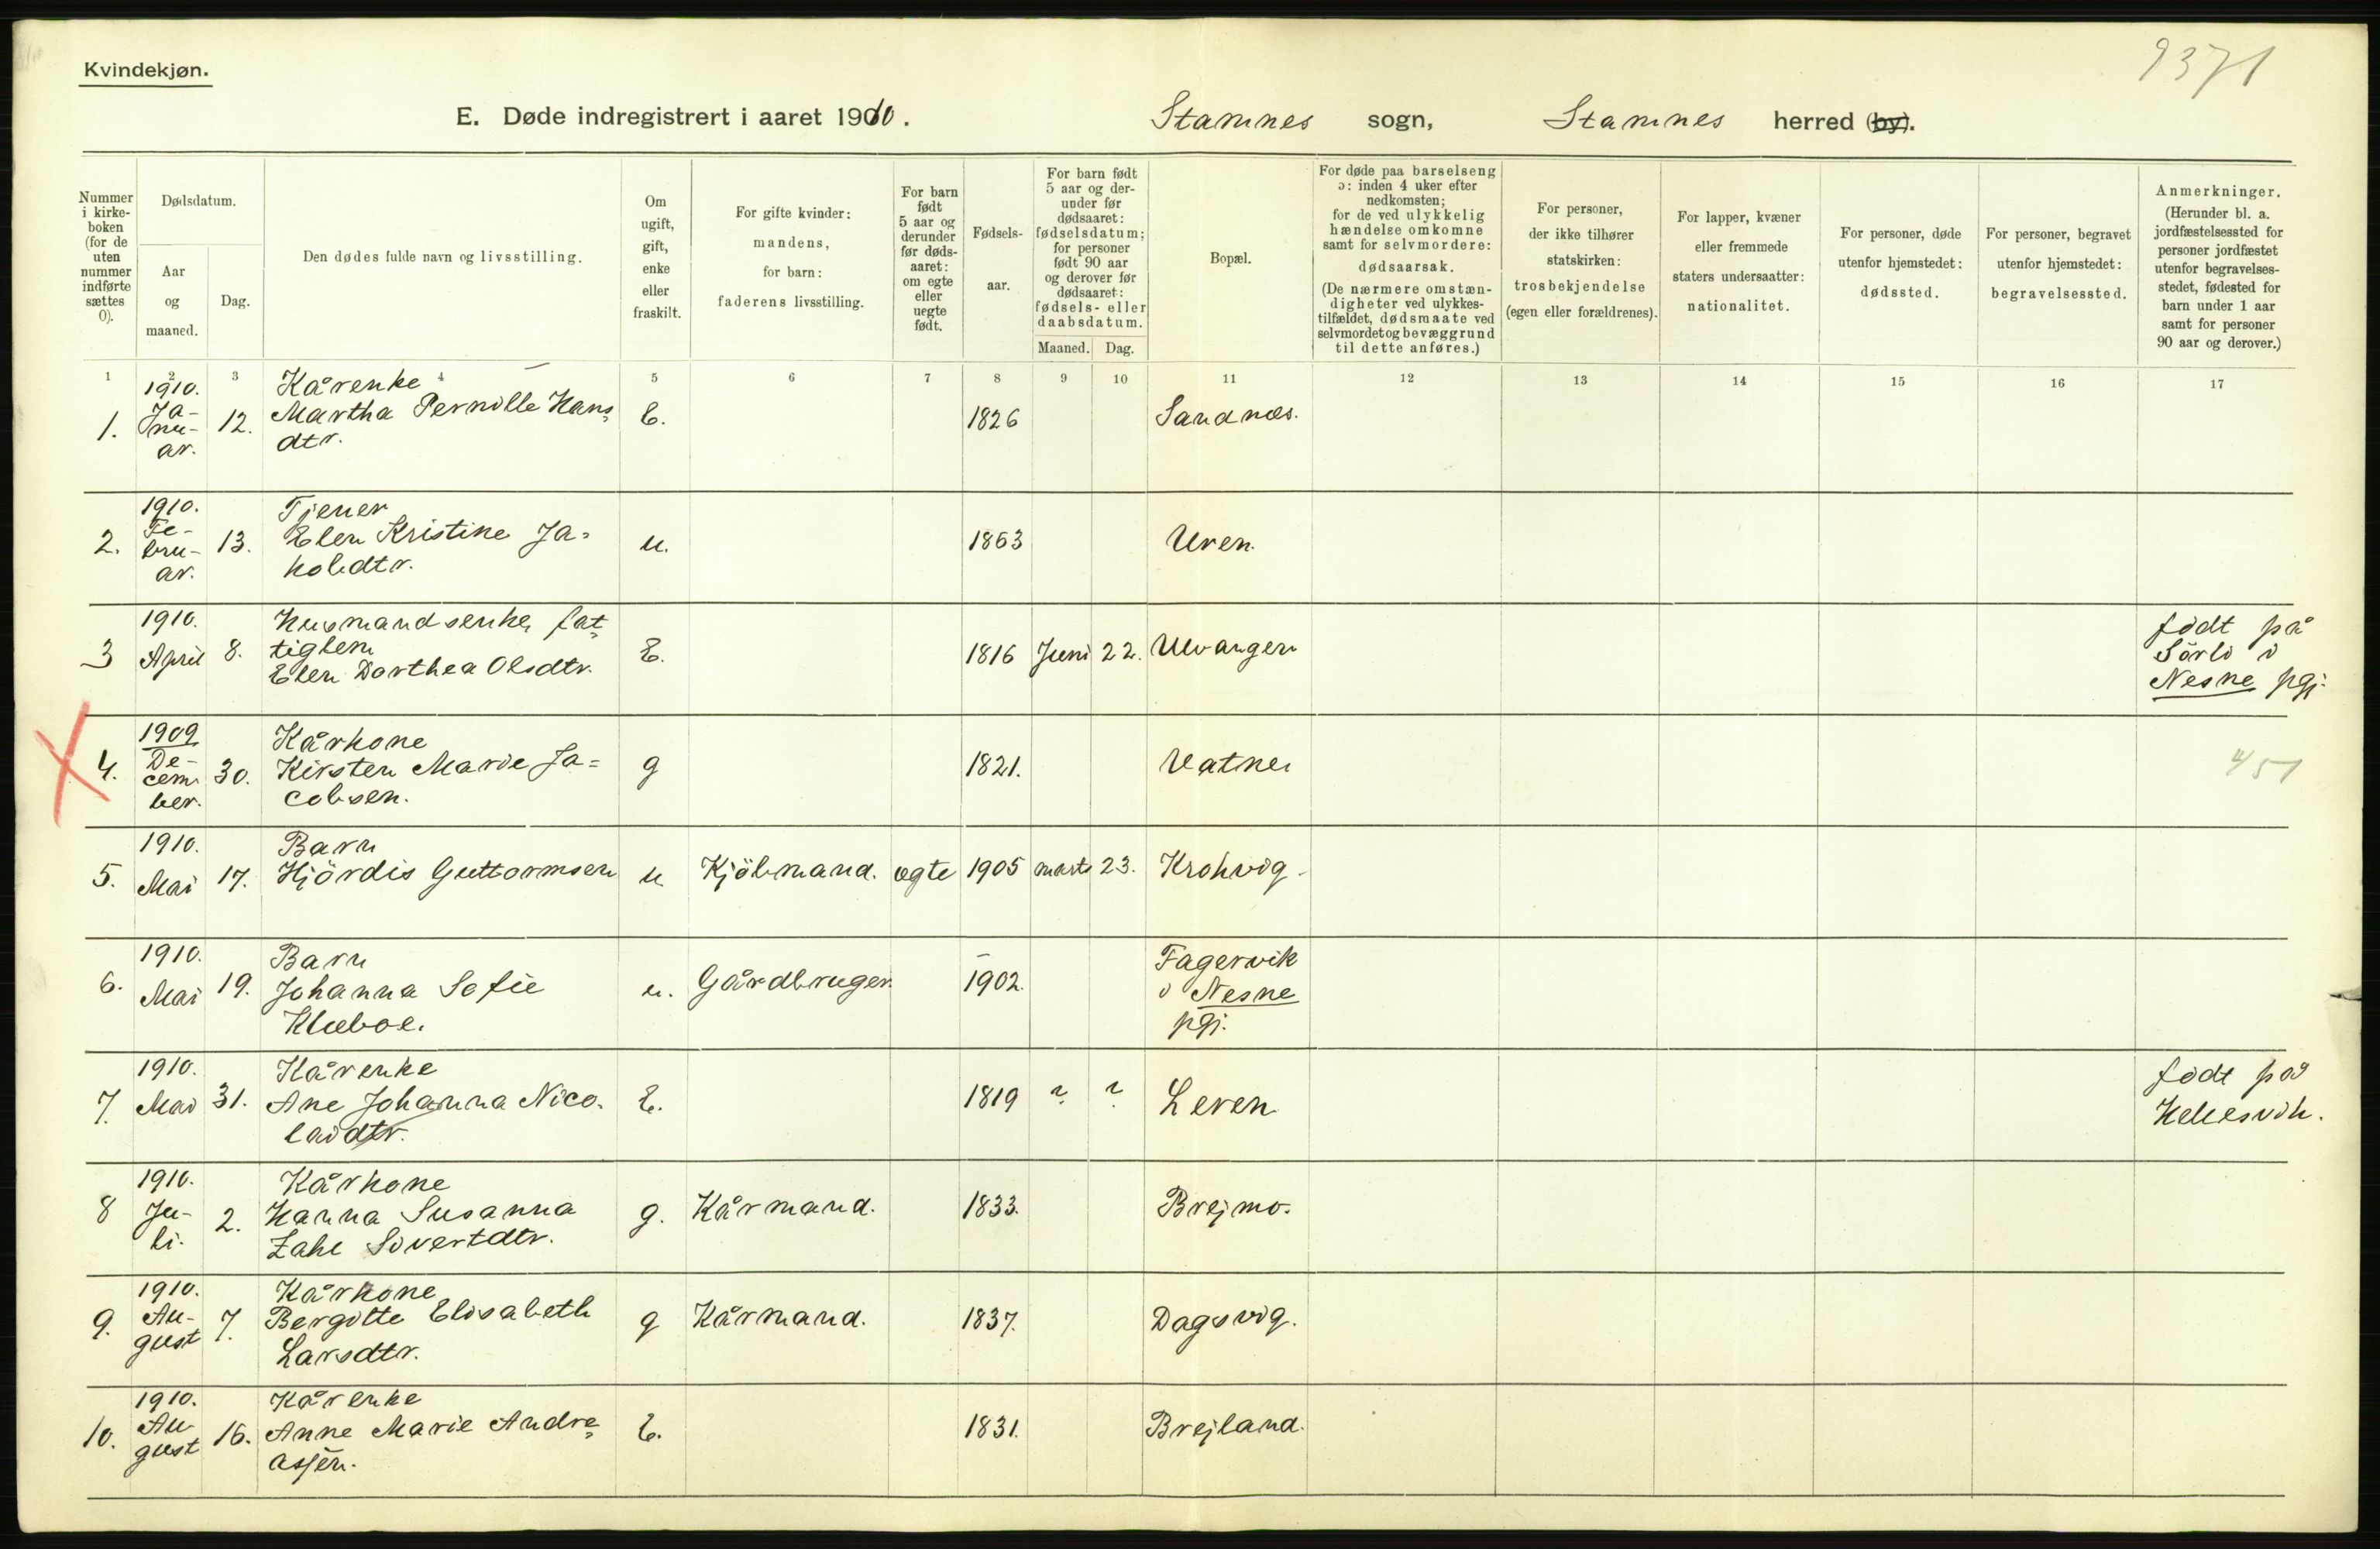 9371
Kvindekjøn.
E. Døde indregistrert i aaret 1910. Stamnes sogn, Stamnes herred (by).
Nummer i kirke- boken (for de uten nummer indførte sættes 0).
Dødsdatum.
Aar og maaned.
Dag.
Den dødes fulde navn og livsstilling.
Om ugift, gift, enke eller fraskilt.
For gifte kvinder: mandens, for barn: faderens livsstilling.
For barn født 5 aar og derunder før døds- aaret: om egte eller uegte født.
Fødsels- aar.
For barn født 5 aar og der- under før dødsaaret: fødselsdatum; for personer født 90 aar og derover før dødsaaret: fødsels- eller daabsdatum.
Maaned. Dag.
Bopæl.
For døde paa barselseng ɔ: inden 4 uker efter nedkomsten; for de ved ulykkelig hændelse omkomne samt for selvmordere: dødsaarsak. (De nærmere omstæn- digheter ved ulykkes- tilfældet, dødsmaate ved selvmordet og bevæggrund til dette anføres.)
For personer, der ikke tilhører statskirken: trosbekjendelse (egen eller forældrenes).
For lapper, kvæner eller fremmede staters undersaatter: nationalitet.
For personer, døde utenfor hjemstedet: dødssted.
For personer, begravet utenfor hjemstedet: begravelsessted.
Anmerkninger. (Herunder bl. a. jordfæstelsessted for personer jordfæstet utenfor begravelses- stedet, fødested for barn under 1 aar samt for personer 90 aar og derover.)
1 2 3 4 5 6 7 8 9 10 11 12 13 14 15 16 17
1. 1910. Ja- nu- ar. 12. Kårenke Martha Pernille Hans= dtr. E. 1826 Sandnæs.
2. 1910. Fe- bru- ar. 13. Tjener Elen Kristine Ja= kobdtr. u. 1863 Uren.
3 1910. April 8. Husmandsenke, fat= tiglem Elen Dorthea Olsdtr. E. 1816 Juni 22. Ulvangen født på Sørli i Nesne pgj.
4. 1909 De- cem- ber. 30. Kårkone Kirsten Marie Ja= cobsen. g 1821. Vatne 4/51
5. 1910. Mai 17. Barn Hjördis Guttormsen u Kjöbmand. ægte 1905 marts 23. Krohvig
6. 1910. Mai 19. Barn Johanna Sofie Kluboe. u. Gårdbruger. 1902. Fagervik i Nesne pgj.
7. 1910. Mai 31. Kårenke Ane Johanna Nico- laidtr. E. 1819 ? ? Leren født på Hellesvik.
8 1910. Ju- li. 2. Kårkone Hanna Susanna Zahl Sivertdtr. g. Kårmand. 1833. Brejmo.
9. 1910. Au- gust 7. Kårkone Bergitte Elisabeth Larsdtr. g Kårmand. 1837. Dagsvig.
10. 1910. Au- gust 16. Kårenke Anne Marie Andre= assen. E. 1831. Brejland.